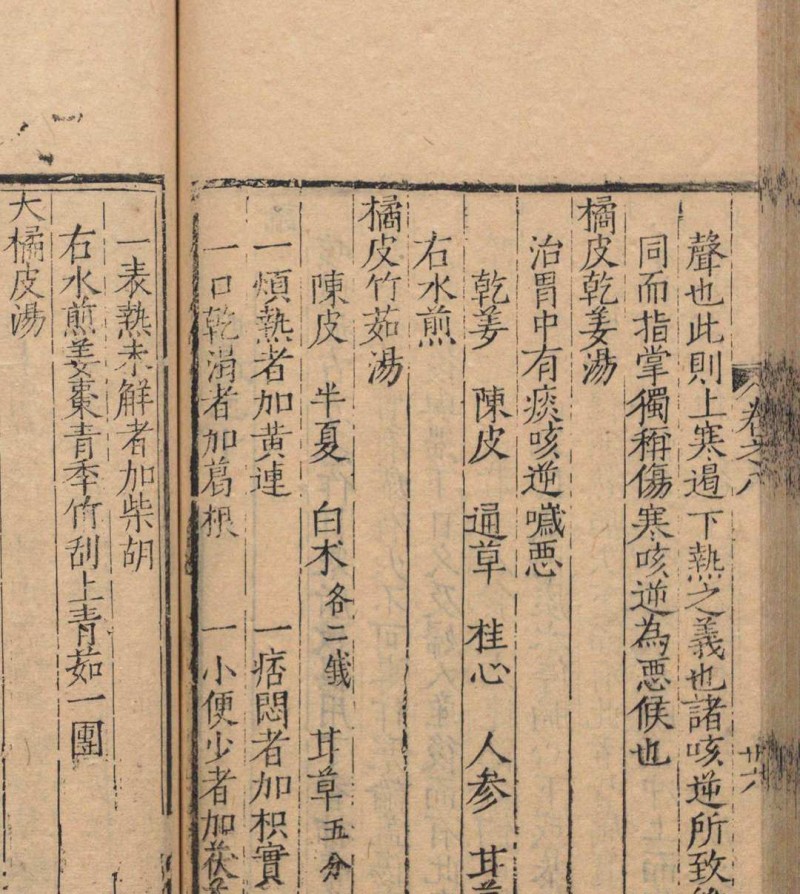 卷之八
廿六
聲也此則上寒遏下熱之義也諸咳逆所致
同而指掌獨稱傷寒咳逆為惡候也
橘皮乾姜湯
治胃中有痰咳逆噦惡
乾姜 陳皮 通草 桂心 人參 甘草
右水煎
橘皮竹茹湯
陳皮 半夏 白朮各二錢 甘草五分
一煩熱者加黃連 一痞悶者加枳實
一口乾渴者加葛根 一小便少者加茯
一表熱未解者加柴胡
右水煎姜棗青季竹刮上青茹一團
大橘皮湯